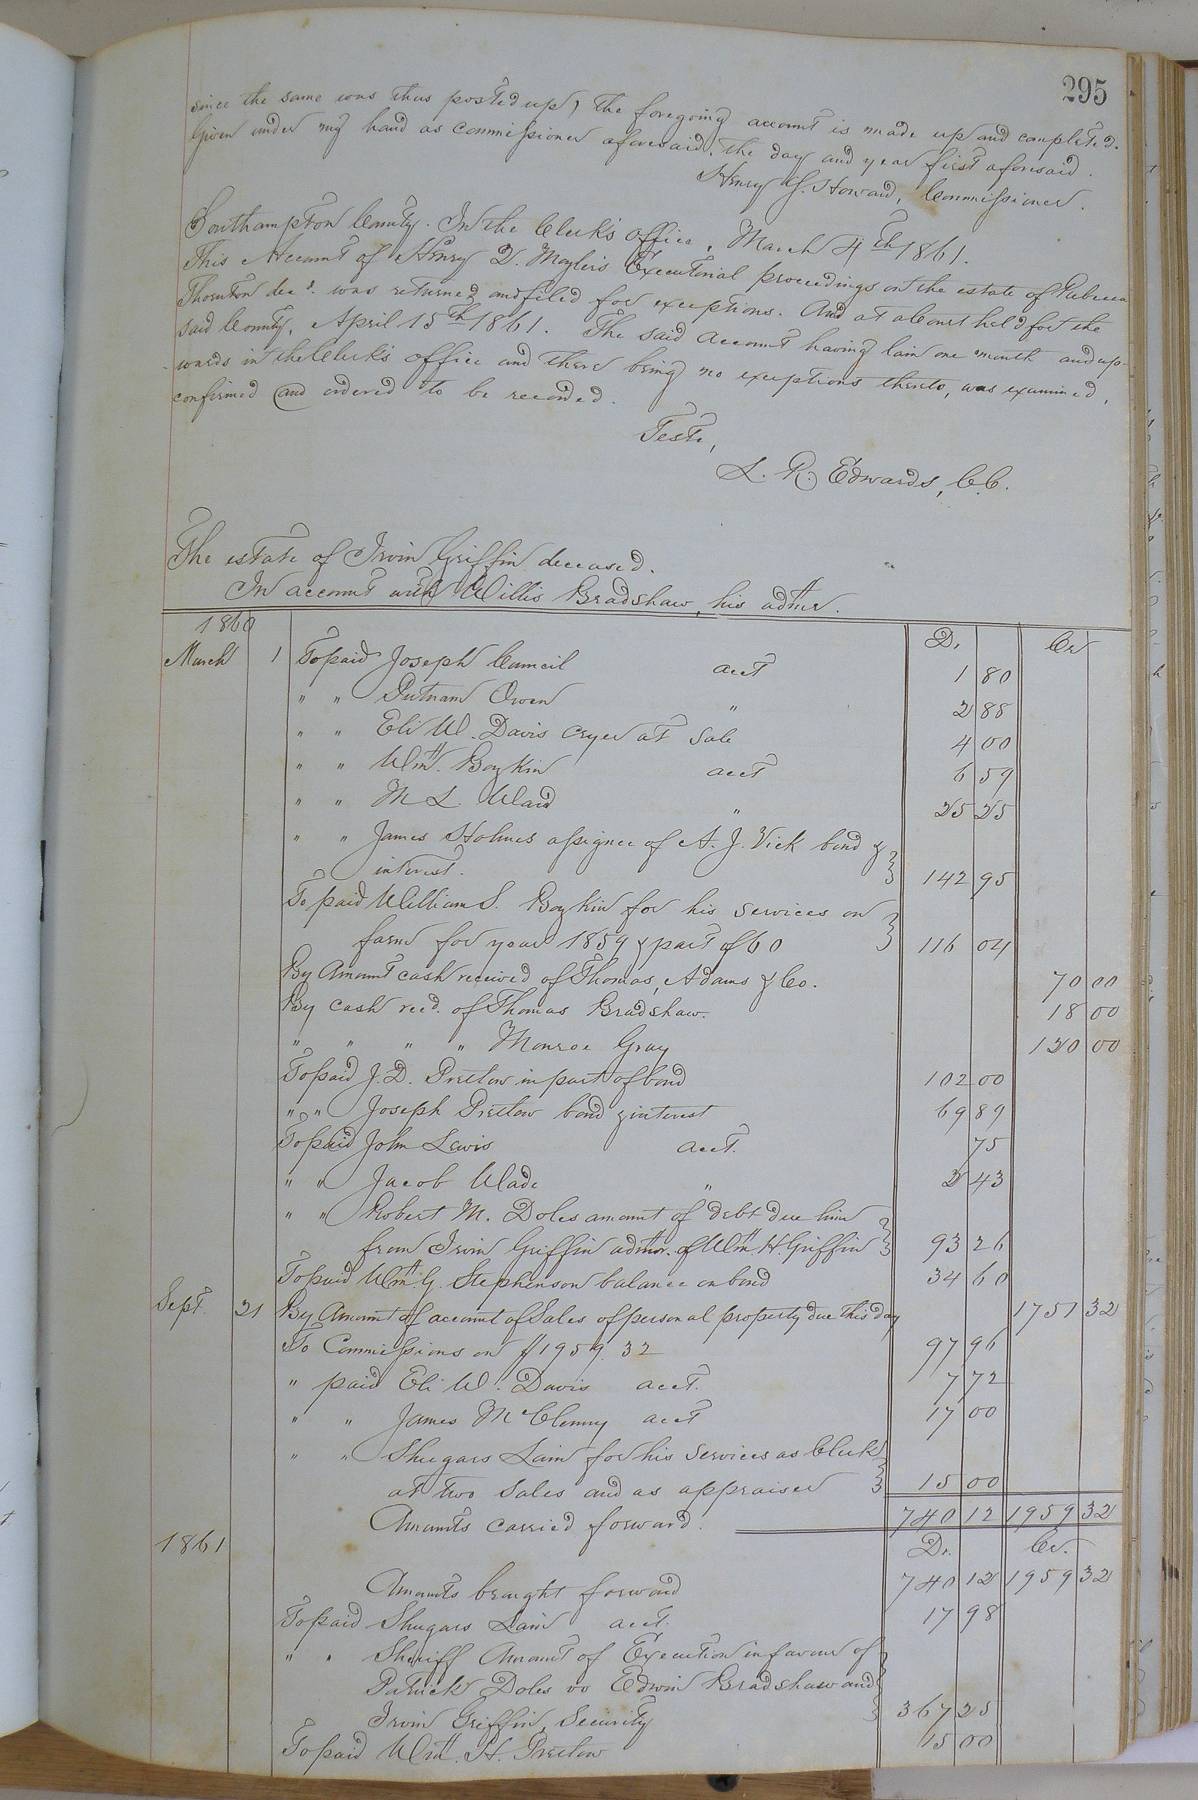 295
since the same was thus posted up, the foregoing account is made up and completed.
Given under my hand as commissioner aforesaid, the day and year first aforesaid.
Henry J. Howard, Commissioner.
Southampton County. In the Clerk's office, March 4th 1861.
This Account of Henry D. Moyler's Executorial proceedings on the estate of Rebecca
Thornton decd. was returned and filed for exceptions. And at a Court held for the
said County, April 15th 1861. The said Account having lain one month and up-
wards in the Clerk's office and there being no exceptions thereto, was examined,
confirmed and ordered to be recorded.
Teste,
L. R. Edwards, C.C.
The estate of Irvin Griffin deceased.
In account with Willis Bradshaw, his admr.
1860 Dr. Cr
March 1 To paid Joseph Council acct 1 80
" " Putnam Owen " 2 88
" " Eli W. Davis cryer at Sale 4 00
" " Wm. Boykin acct 6 59
" " M L. Ward " 25 25
" " James Holmes assignee of A. J. Vick bond &
interest. 142 95
To paid William S. Boykin for his services on
farm for year 1859 & part of 60 116 04
By Amount cash received of Thomas, Adams & Co. 70 00
By cash recd. of Thomas Bradshaw. 18 00
" " " " Monroe Gray 120 00
To paid J. D. Pretlow in part of bond 102 00
" " Joseph Pretlow bond & interest 69 89
To paid John Lewis acct. 75
" " Jacob Wade " 2 43
" " Robert M. Doles amount of debt due him
from Irvin Griffin admor. of Wm H. Griffin 93 26
To paid Wm. G. Stephenson balance on bond 34 60
Sept. 21 By Amount of account of Sales of personal property due this day 1751 32
To Commissions on $1959.32 97 96
" paid Eli W. Davis acct. 7 72
" " James McClenny acct 17 00
" " Shugars Lain for his services as Clerk
at two Sales and as appraiser 15 00
Amounts carried forward. 740 12 1959 32
1861 Dr. Cr.
Amounts brought forward 740 12 1959 32
To paid Shugars Lain acct. 17 98
" " Sheriff Amount of Execution in favour of
Patrick Doles vs Edwin Bradshaw and
Irvin Griffin, Security 367 25
To paid Wm. H. Pretlow 15 00